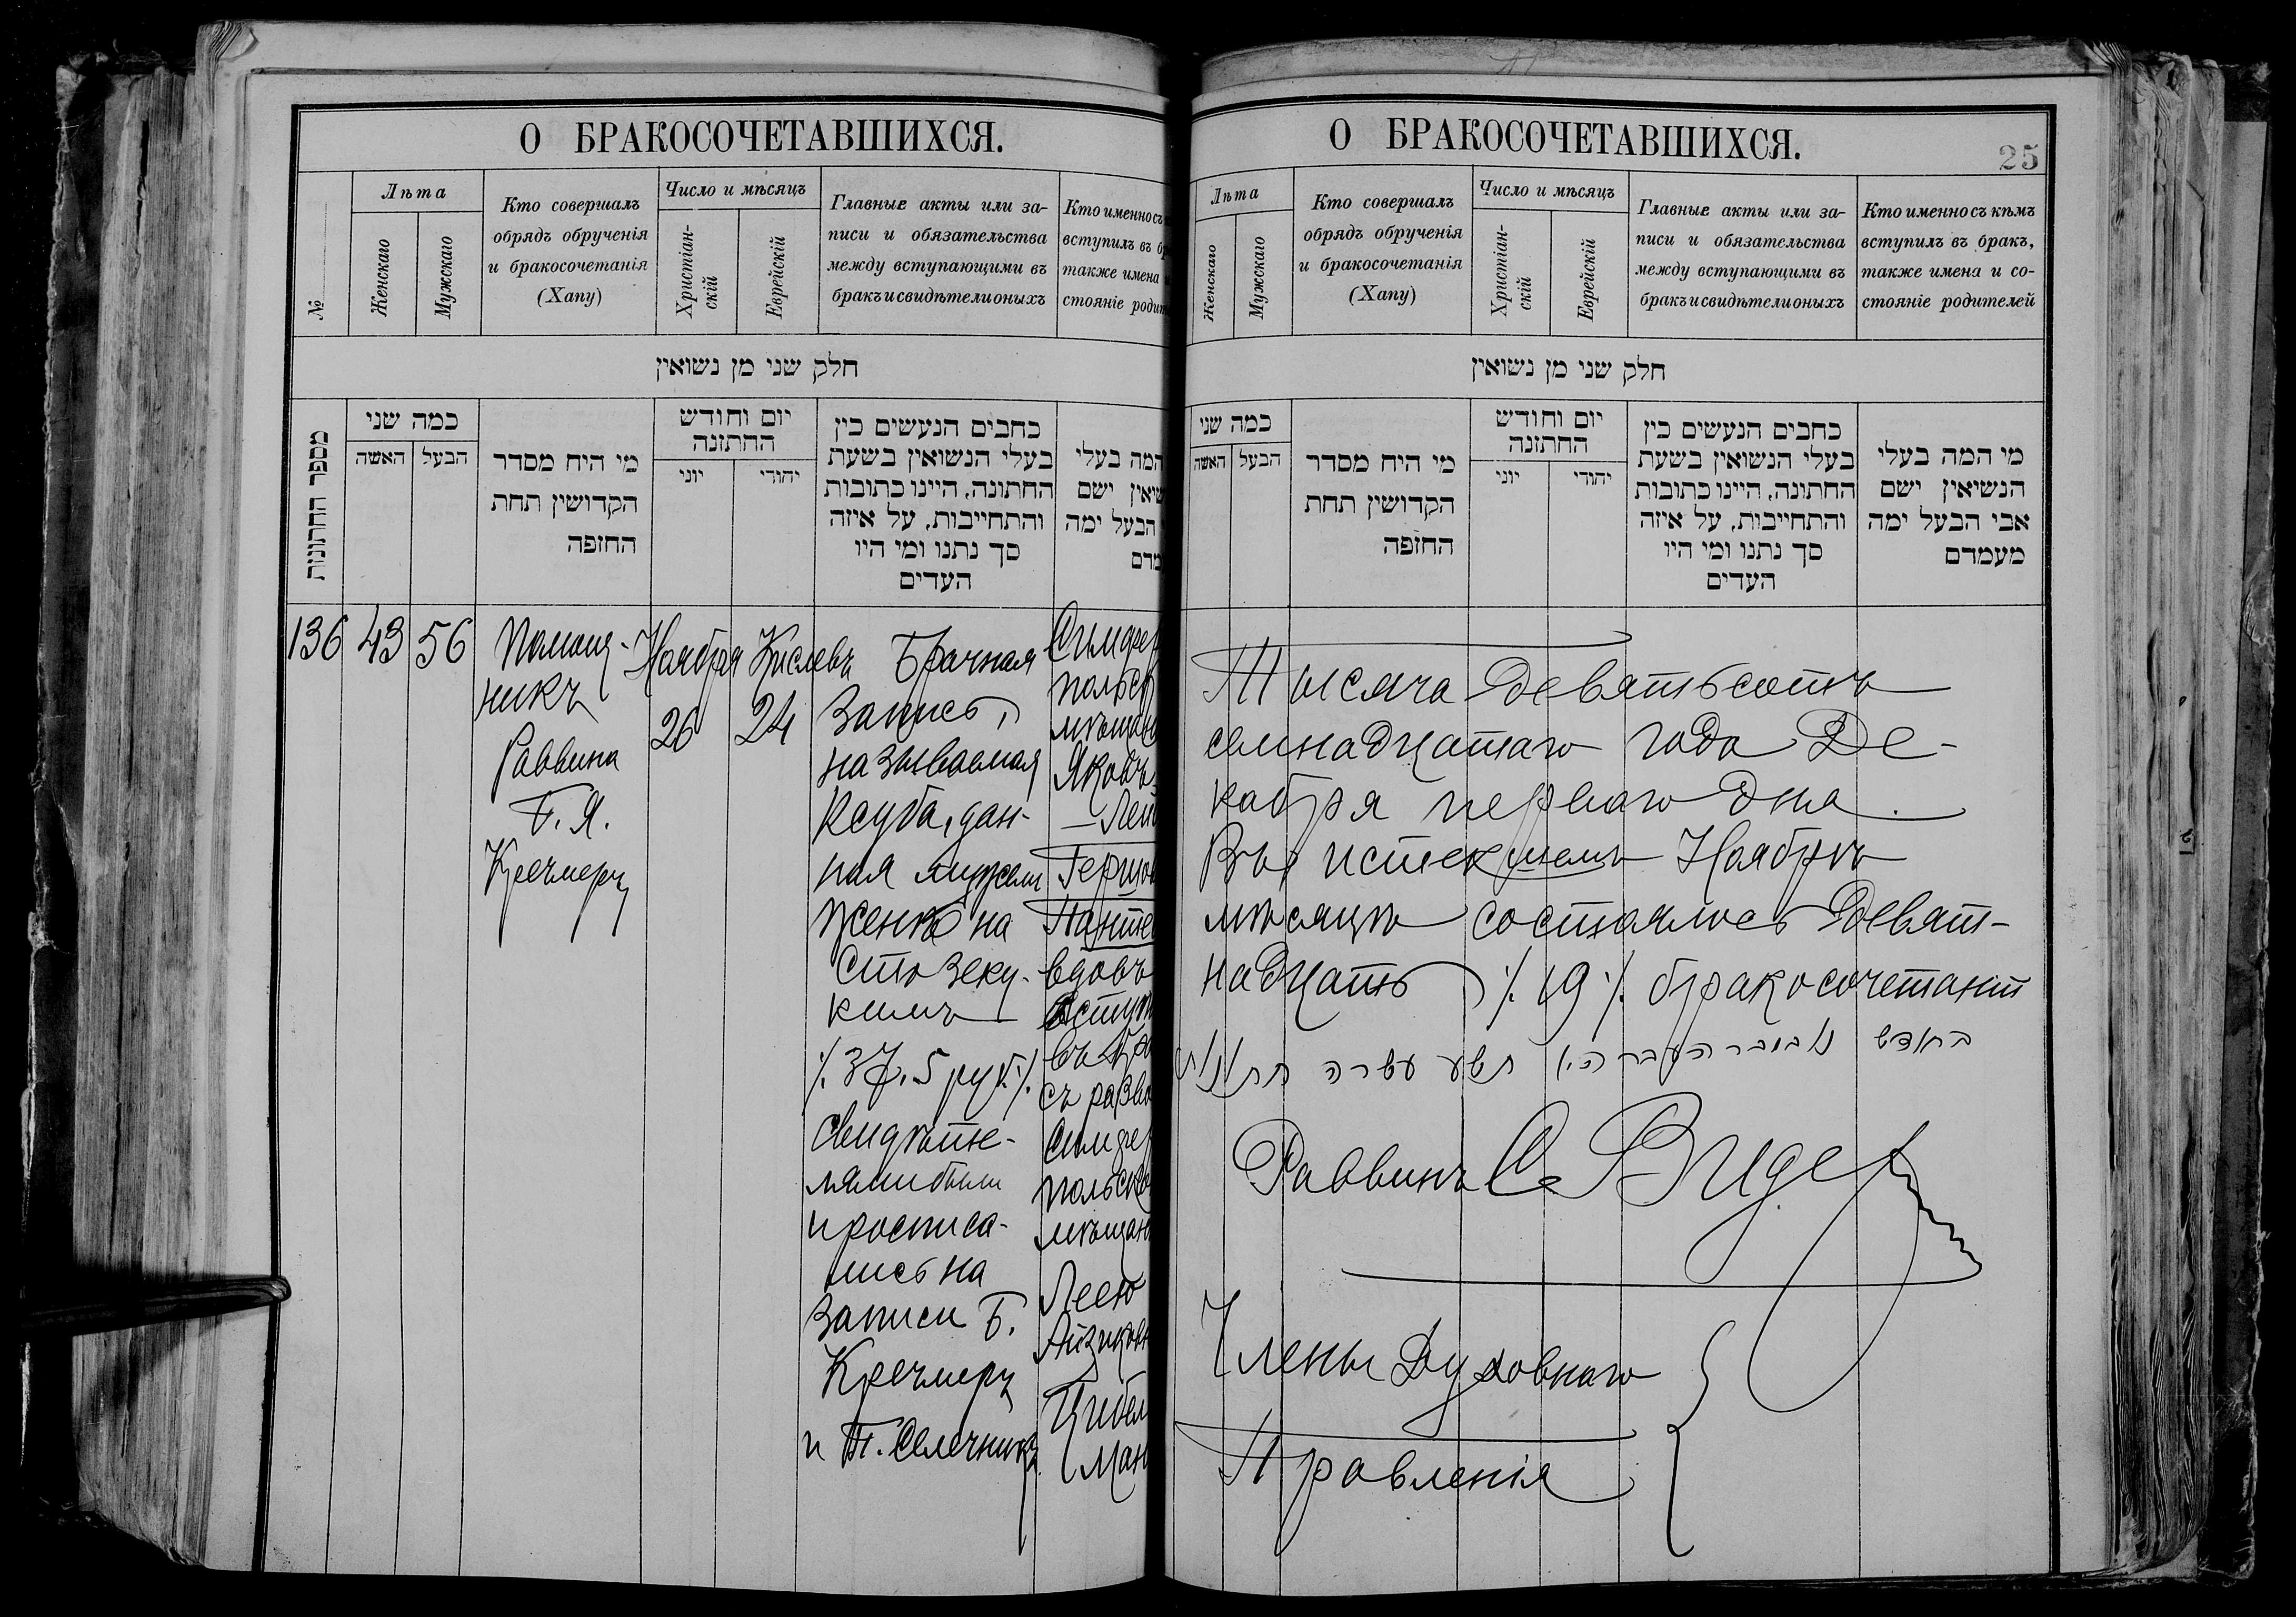 О БРАКОСОЧЕТАВШИХСЯ.
№
Лѣта
Женскаго
Мужскаго
Кто совершалъ
обрядъ обрученія
и бракосочетанія
(Хапу)
Число и мѣсяцъ
Христіан-
скій
Еврейскій
Главные акты или за-
писи и обязательства
между вступающими въ
бракъ и свидѣтели оныхъ
Кто именно съ
вступилъ въ
также имена
стояніе
חלק שני מן נשואין
מספר החתונות
כמה שני
האשה
הבעל
מי היח מסדר
הקדושין תחת
החזפה
יום וחודש
החתזנה
יוני
יהודי
כחבים הנעשים כין
בעלי הנשואין בשעת
החתונה, היינו כתובות
והתחייבות, על איזה
סך נתנו ומי היו
העדים
המה בעלי
ישם
הבעל ימה
136
43
56
Помощ-
никъ
Раввина
Б. Я.
Кречмеръ
Ноября
26
Кислевъ
24
Брачная
запись,
называемая
Ксуба, дан-
ная мужем
женѣ на
сто зеку-
кимъ
% 37.5 руб. %
Свидѣте-
лями были
и росписа-
лись на
записи Б.
Кречмеръ
и Т. Селечникъ
Симфер
польск
мѣщан
Яковъ-
-Лей
Гершо
Панте
вдовъ
вступ
въ бра
съ разв
Симфер
польск
мѣщан
Леею
Айзиков
Цибел
ман
О БРАКОСОЧЕТАВШИХСЯ.
25
Лѣта
Женскаго
Мужскаго
Кто совершалъ
обрядъ обрученія
и бракосочетанія
(Хапу)
Число и мѣсяцъ
Христіан-
скій
Еврейскій
Главные акты или за-
писи и обязательства
между вступающими въ
бракъ и свидѣтели оныхъ
Кто именно съ кѣмъ
вступилъ въ бракъ,
также имена и со-
стояніе родителей
חלק שני מן נשואין
כמה שני
האשה
הבעל
מי היח מסדר
הקדושין תחת
החזפה
יום וחודש
החתזנה
יוני
יהודי
כחבים הנעשים כין
בעלי הנשואין בשעת
החתונה, היינו כתובות
והתחייבות, על איזה
סך נתנו ומי היו
העדים
מי המה בעלי
הנשיאין ישם
אבי הבעל ימה
מעמדם
Тысяча девятьсотъ
семнадцатаго года Де-
кабря перваго дня.
Въ истекшемъ Ноябрѣ
мѣсяцѣ состоялось девят-
надцать % 19 % бракосочетаній
בחודש נאבובר העבר היו תשע עשרה
Раввинъ С Видер
Члены Духовнаго
Правленія